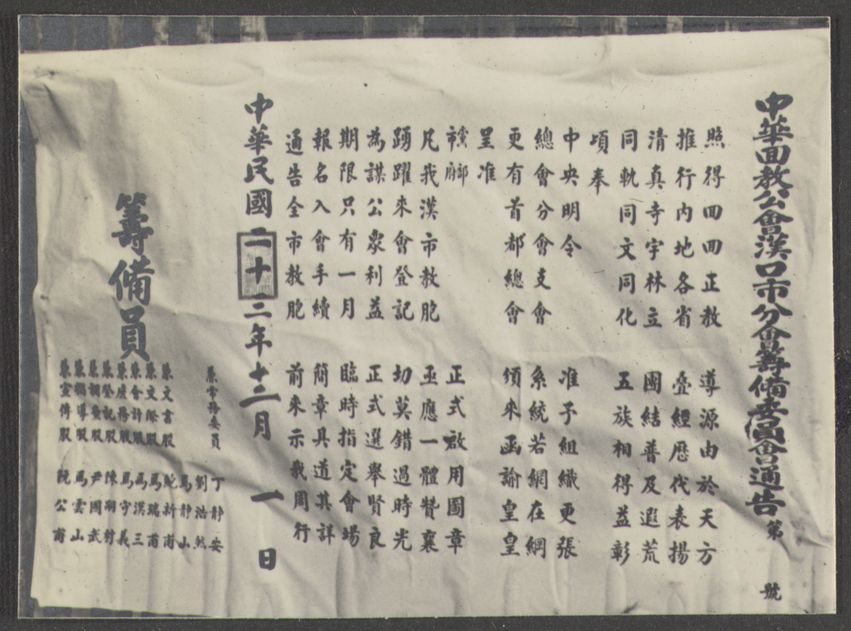 中華回教公會漢口市分會籌備委員會通告第 號
照得回回正教 導源由於天方
推行內地各省 疊經歷代表揚
清真寺宇林立 團結普及遐荒
同軌同文同化 五族相得益彰
頃奉
中央明令 准予組織更張
總會分會支會 系統若網在綱
更有首都總會 頒來函諭皇皇
呈准
市黨部 市府 正式啟用圖章
凡我漢市教胞 亟應一體贊襄
踴躍來會登記 切莫錯過時光
為謀公衆利益 正式選舉賢良
期限只有一月 臨時指定會場
報名入會手續 簡章具道其詳
通告全市教胞 前來示我周行
中華民國二十三年十二月 一 日
籌備員
兼常務委員 丁靜安
劉浩然
馬靜山
兼文書股 新甫
兼交際股 馬瑞甫
兼會計股 馬漢三
兼庶務股 馬守義
兼登記股 陳
兼調查股 尹國武
兼指導股 馬雲山
兼宣傳股 阮公甫